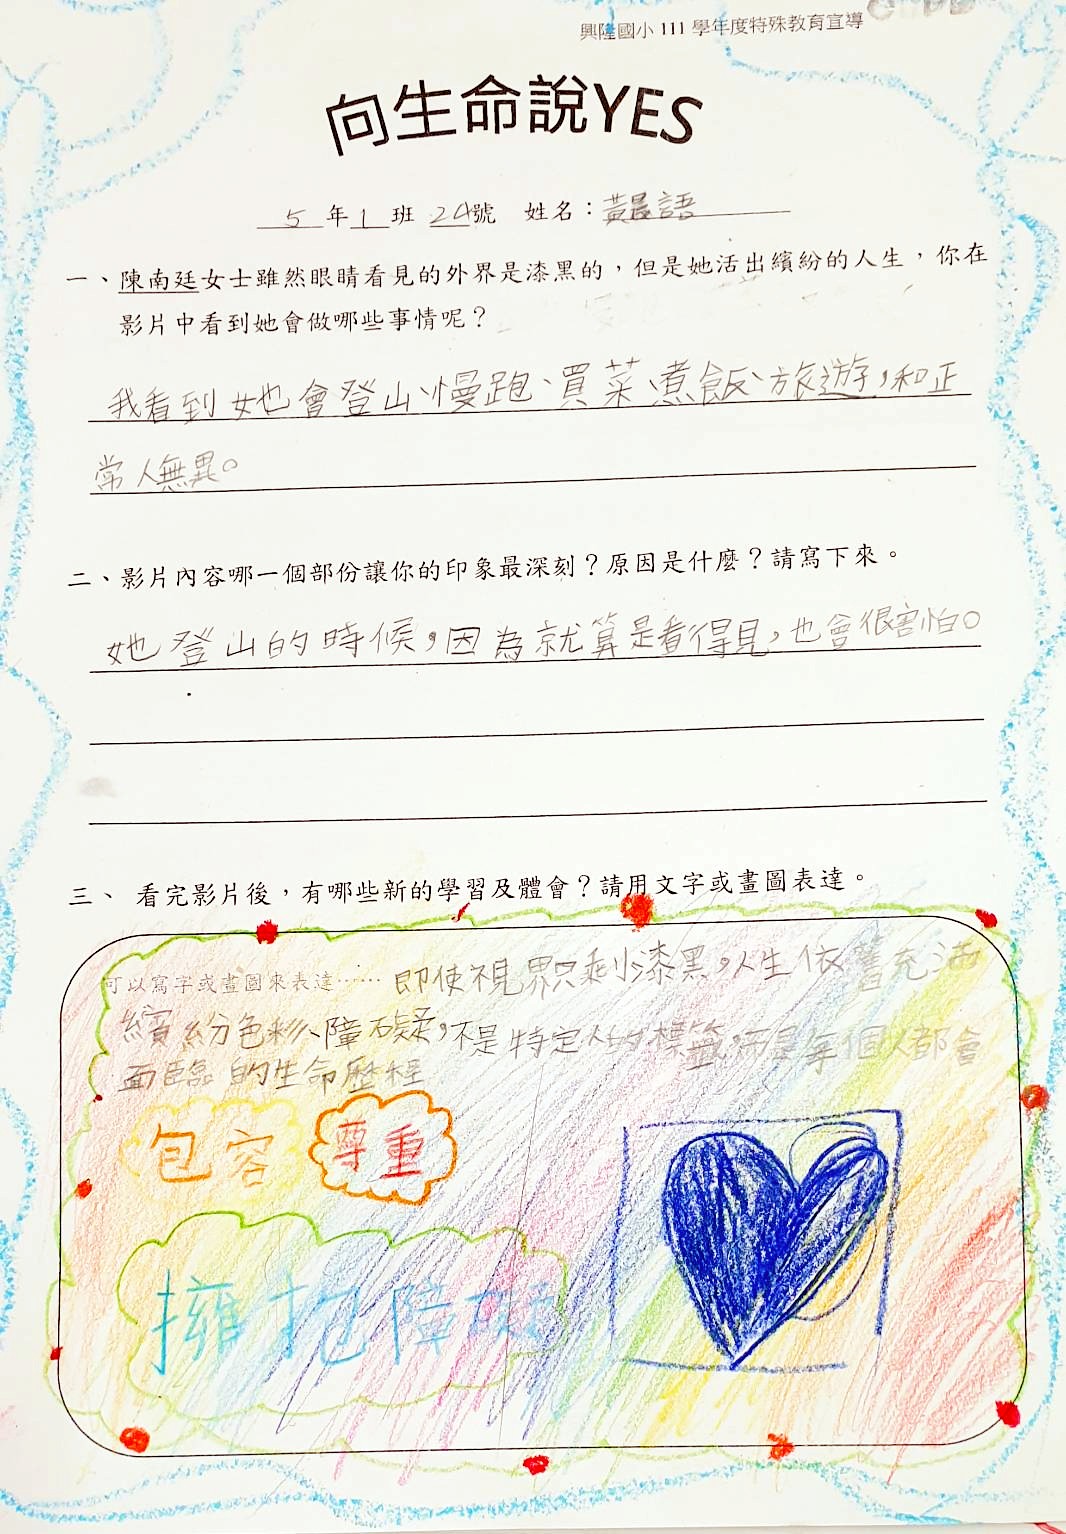 興隆國小 111 學年度特殊教育宣導
向生命說YES
5年1班 24號 姓名：黃晨語
一、陳南廷女士雖然眼睛看見的外界是漆黑的，但是她活出繽紛的人生，你在
影片中看到她會做哪些事情呢？
我看到她也會登山、慢跑、買菜、煮飯、旅遊，和正
常人無異。
二、影片內容哪一個部份讓你的印象最深刻？原因是什麼？請寫下來。
她登山的時候，因為就算是看得見，也會很害怕。
三、 看完影片後，有哪些新的學習及體會？請用文字或畫圖表達。
可以寫字或畫圖來表達…… 即使視界只剩漆黑，人生依舊充滿
繽紛色彩、障礙，不是特定人的標籤，而是每個人都會
面臨的生命歷程
包容 尊重
擁抱障礙